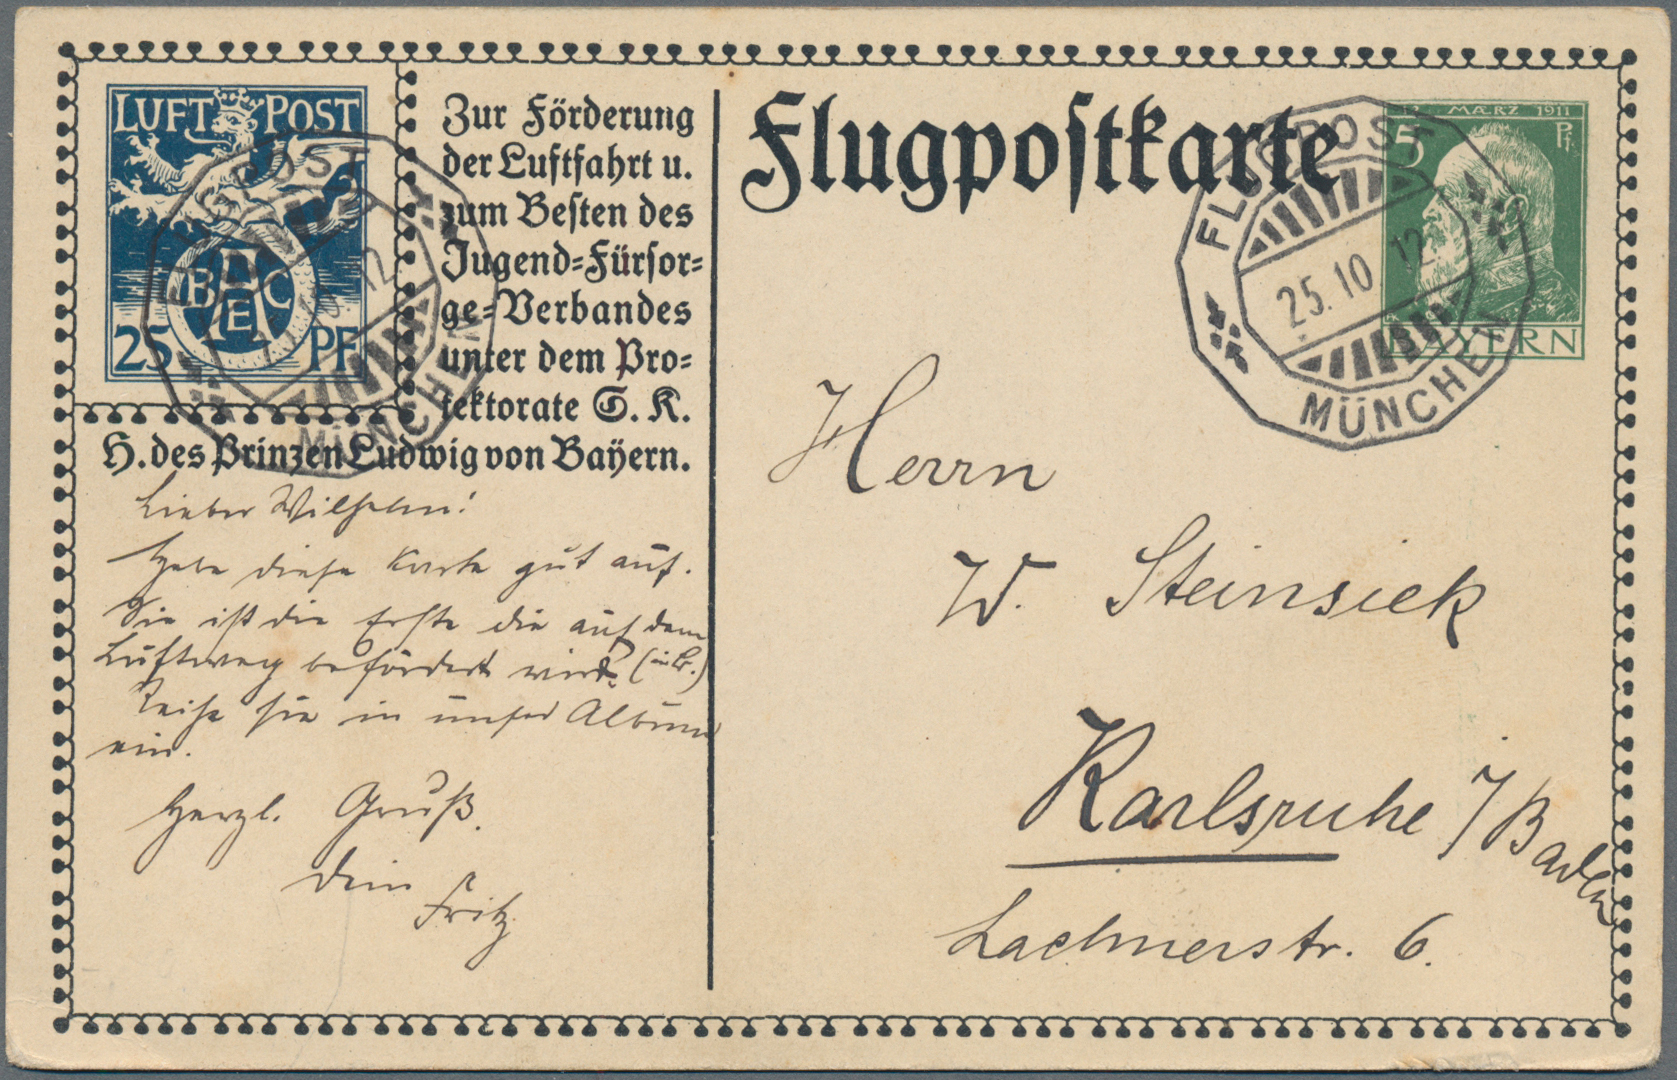 LUFT POST
BAEC
25 PF
FLUGPOST
MÜNCHEN
Zur Förderung
der Luftfahrt u.
zum Besten des
Jugend=Fürsor=
ge=Verbandes
unter dem Pro=
tektorate S. K.
H. des Prinzen Ludwig von Bayern.
Lieber Wilhelm!
Hebe diese Karte gut auf.
Sie ist die Erste die auf dem
Luftweg befördert wird. (in Br.)
Reihe sie in unser Album
ein.
Herzl. Gruß.
Dein
Fritz
Flugpostkarte
12 MÆRZ 1911
5 Pf.
BAYERN
FLUGPOST
25.10 12
MÜNCHEN
Herrn
W. Steinsiek
Karlsruhe i/Baden
Lachnerstr. 6.